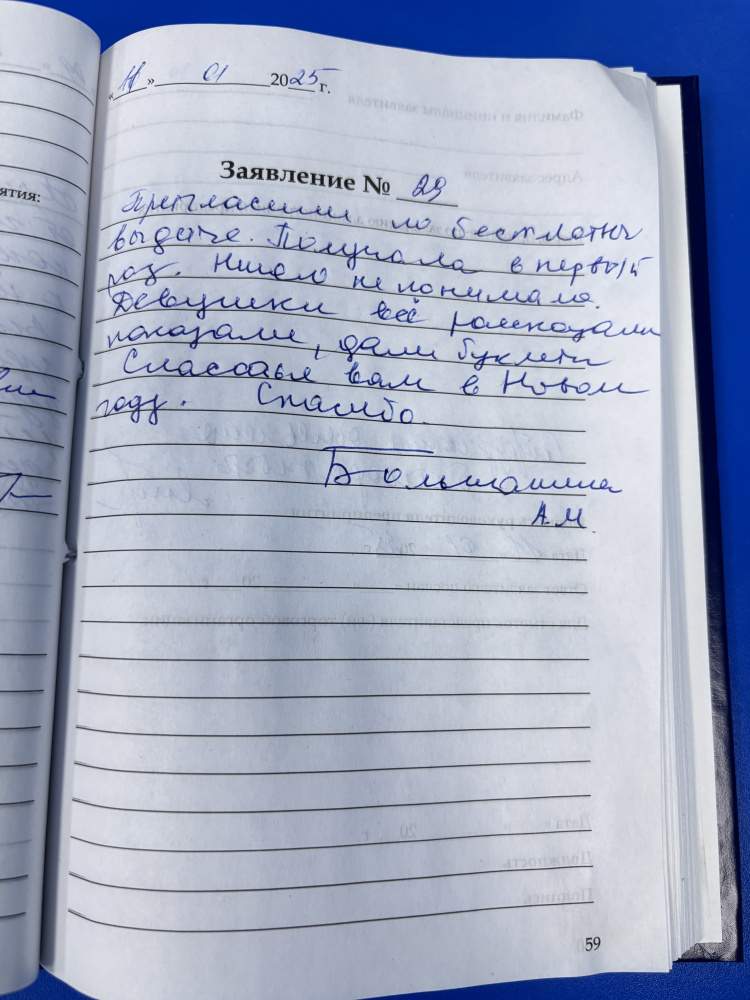 « » 01 2025 г.
Заявление № 29
Пригласили по бесплатн
выдаче. Получала в первый
раз. Ничего не понимала.
Девушки всё рассказали
показали, дали буклеты
Счастья вам в Новом
году. Спасибо.
Большанина
А.М.
59
ятия: